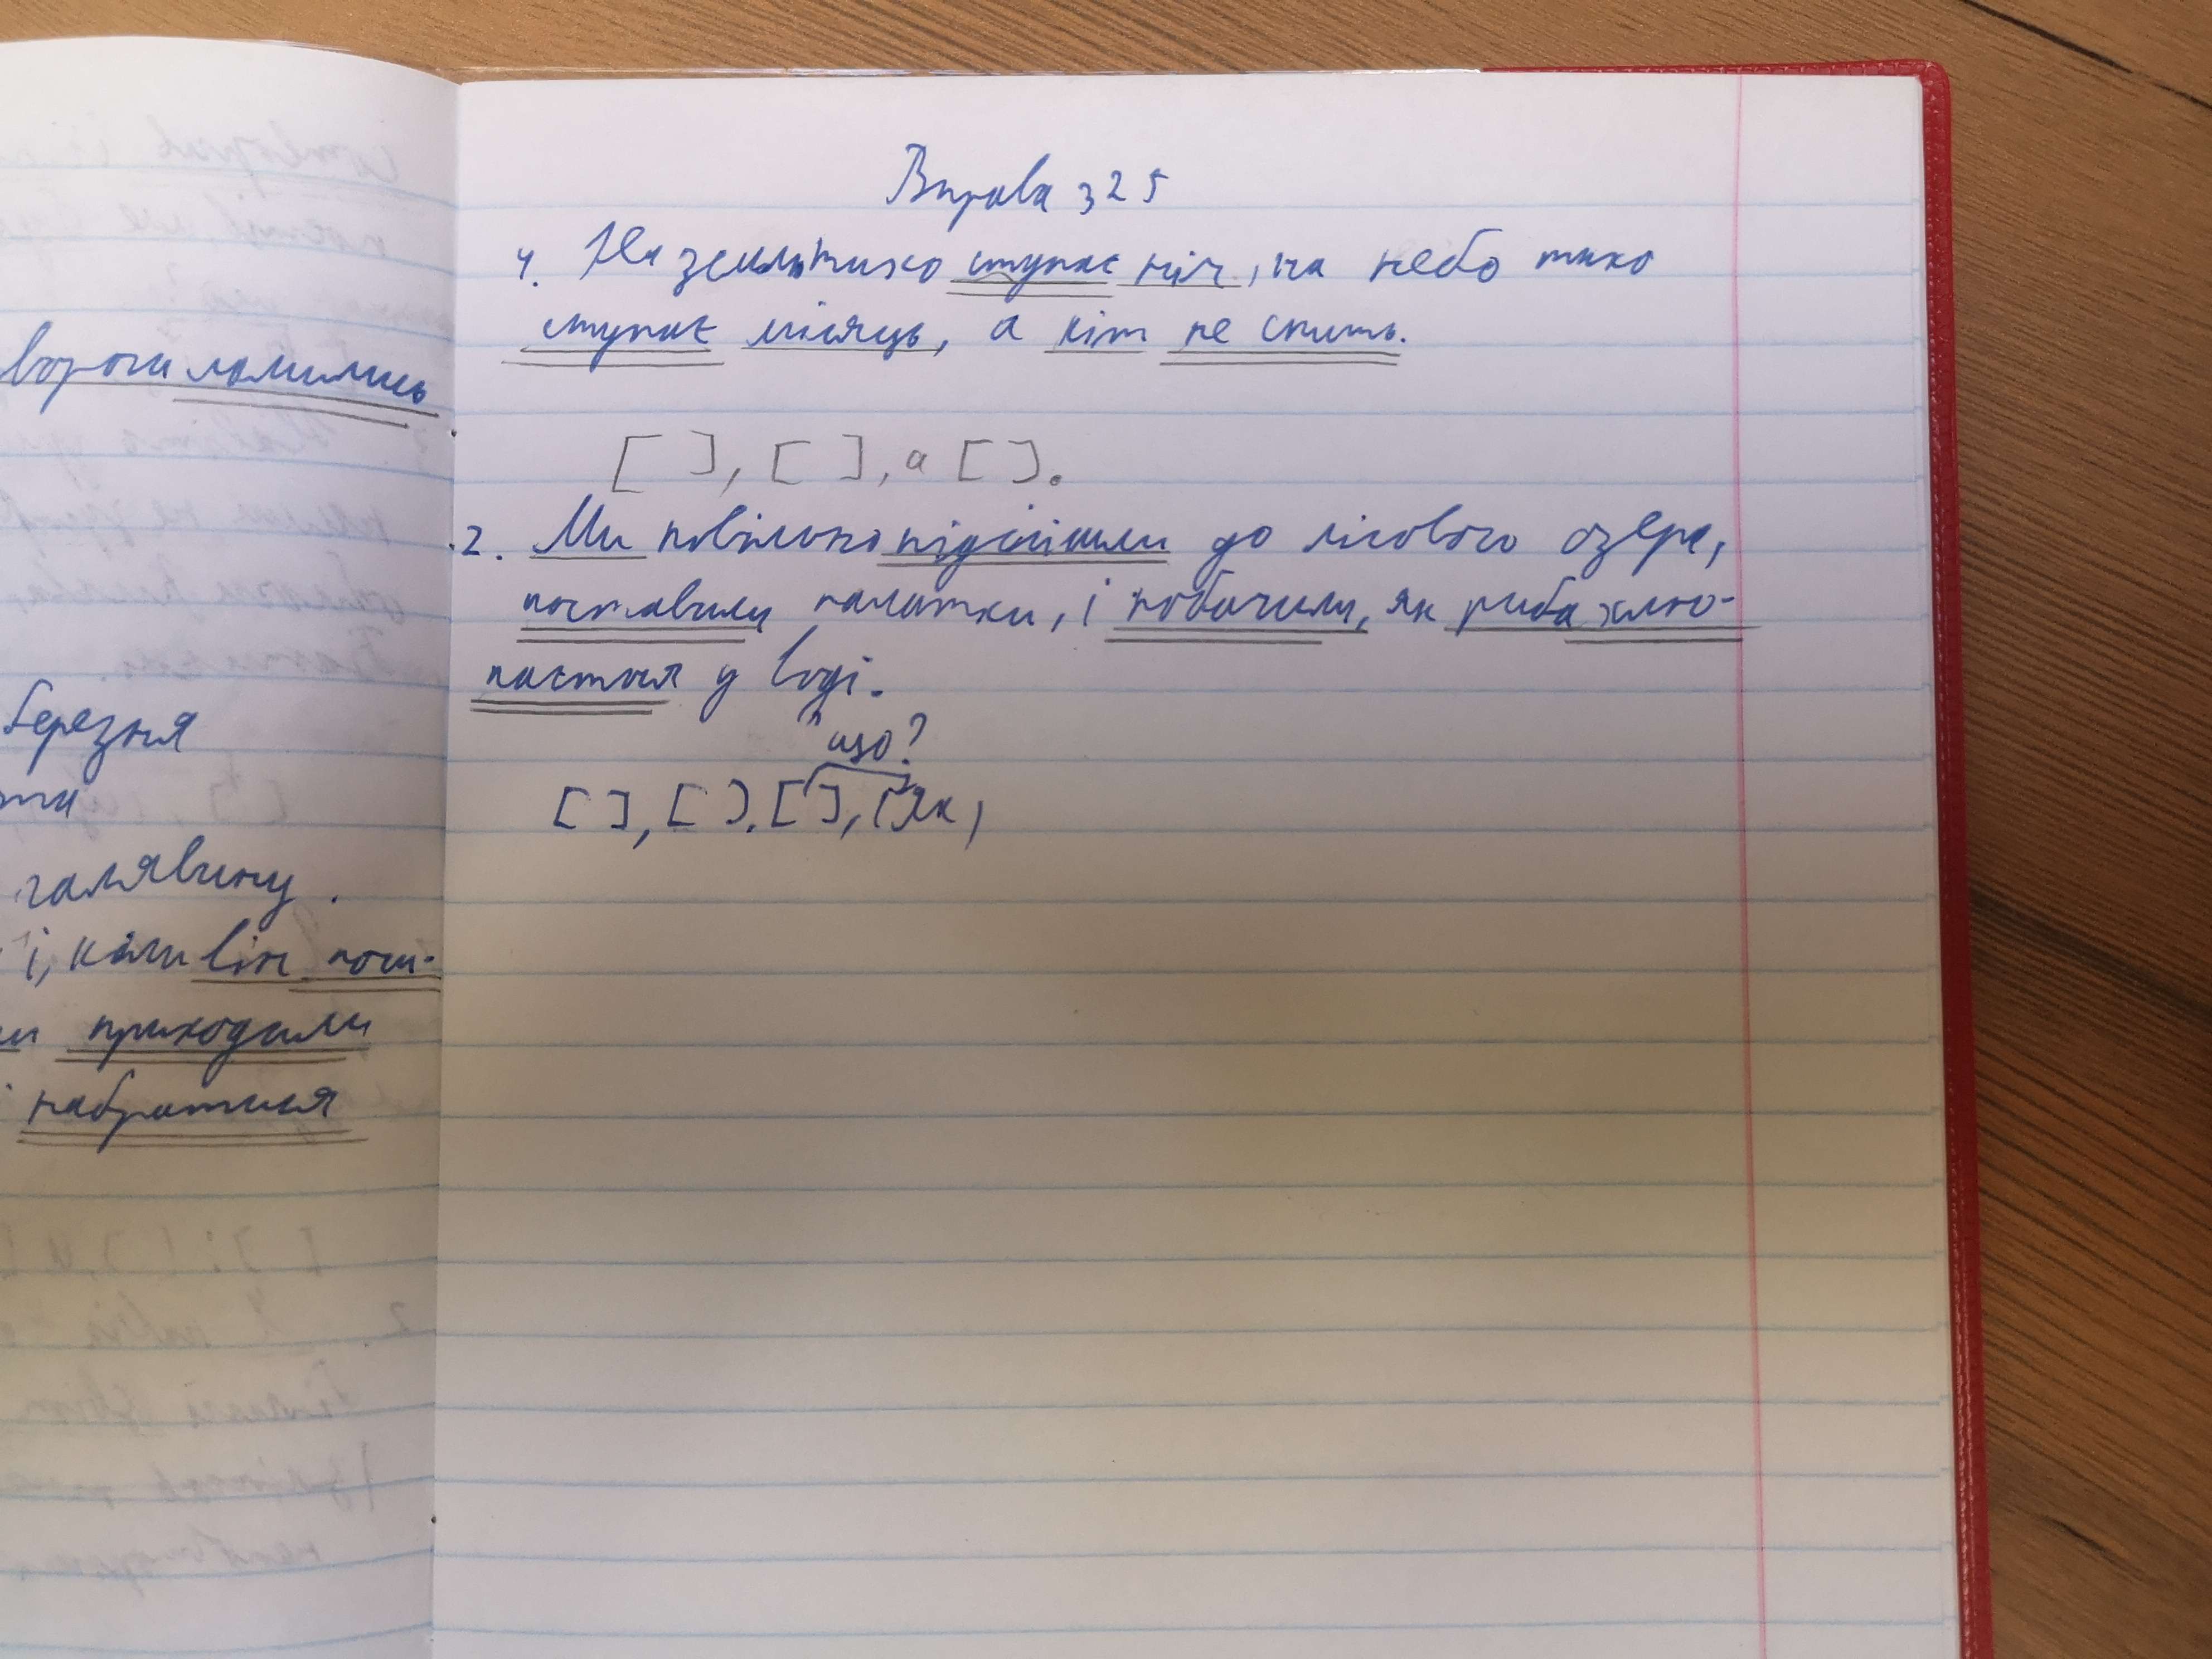 вороги ломились
березня
галявину.
і, коли він пош-
приходили
набратися
Вправа 325
4. На землю тихо ступає ніч, на небо тихо
ступає місяць, а кіт не спить.
[ ], [ ], а [ ].
2. Ми повільно підійшли до лісового озера,
поставили палатки, і побачили, як риба хлю-
пається у воді.
що?
[ ], [ ], [ ], (як)